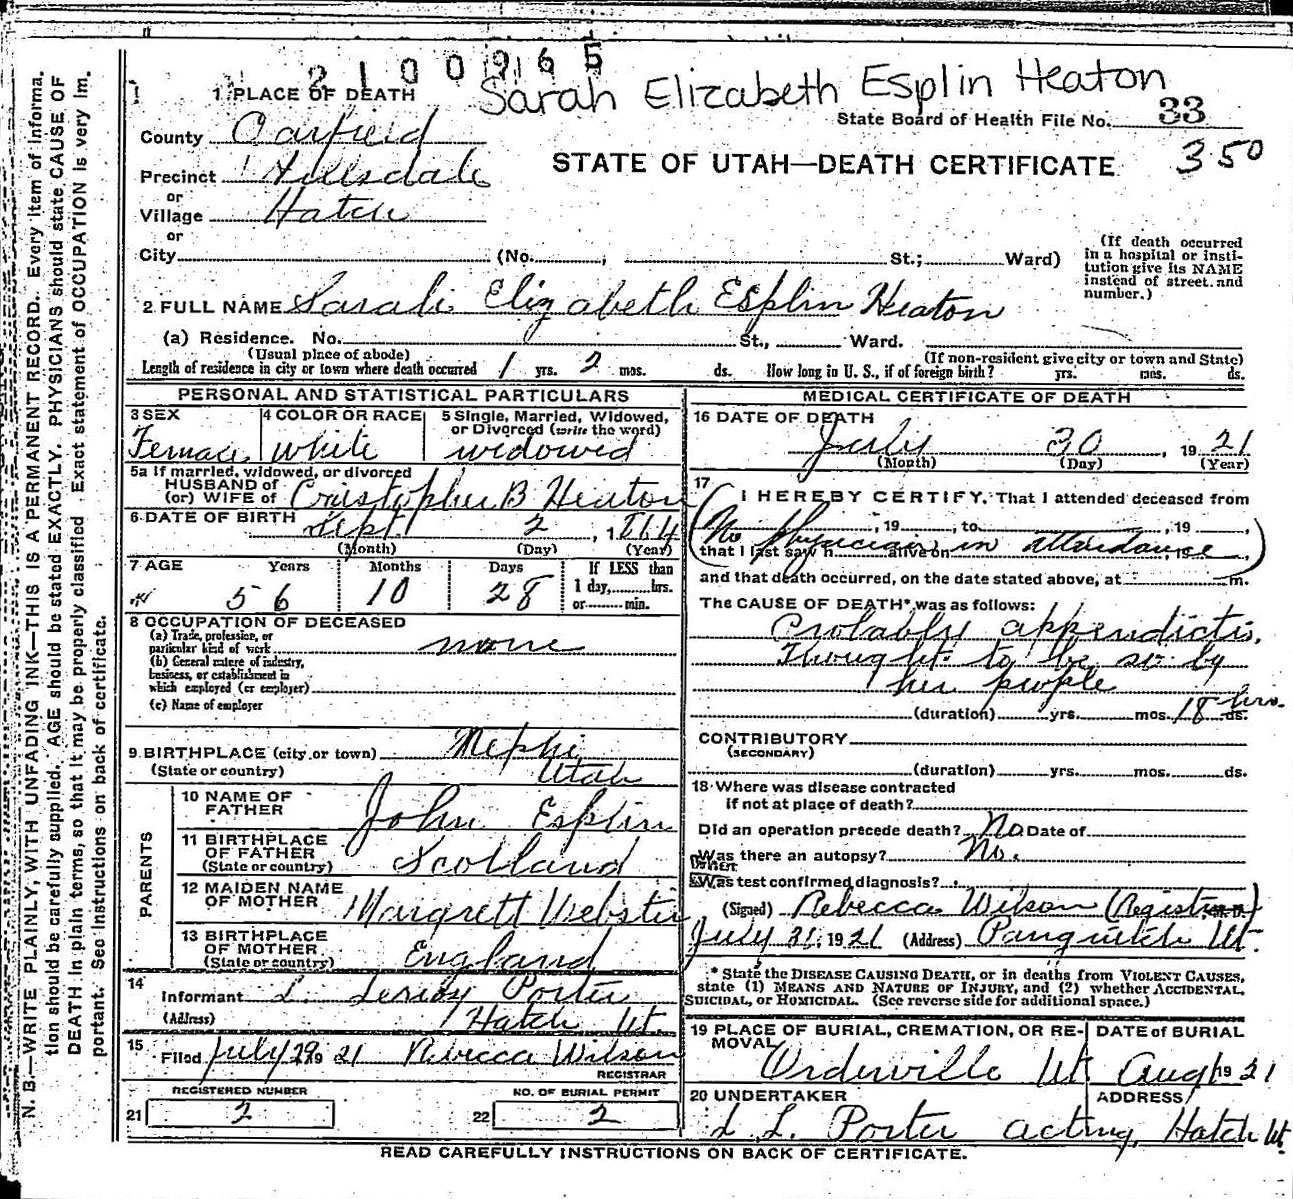 2100965
Sarah Elizabeth Esplin Heaton
1 PLACE OF DEATH
State Board of Health File No. 33
County Garfield
STATE OF UTAH—DEATH CERTIFICATE
350
Precinct Hillsdale
or
Village Hatch
or
City (No. , St.; Ward)
(If death occurred
in a hospital or insti-
tution give its NAME
instead of street and
number.)
2 FULL NAME Sarah Elizabeth Esplin Heaton
(a) Residence. No. St., Ward.
(Usual place of abode) (If non-resident give city or town and State)
Length of residence in city or town where death occurred 1 yrs. 2 mos. ds. How long in U. S., if of foreign birth? yrs. mos. ds.
PERSONAL AND STATISTICAL PARTICULARS
3 SEX
Female
4 COLOR OR RACE
white
5 Single, Married, Widowed,
or Divorced (write the word)
widowed
5a If married, widowed, or divorced
HUSBAND of
(or) WIFE of Cristopher B Heaton
6 DATE OF BIRTH Sept 2, 1864
(Month) (Day) (Year)
7 AGE Years Months Days If LESS than
1 day, hrs.
56 10 28 or min.
8 OCCUPATION OF DECEASED
(a) Trade, profession, or
particular kind of work none
(b) General nature of industry,
business, or establishment in
which employed (or employer)
(c) Name of employer
9 BIRTHPLACE (city or town) Nephi
(State or country) Utah
PARENTS
10 NAME OF
FATHER John Esplin
11 BIRTHPLACE
OF FATHER
(State or country) Scotland
12 MAIDEN NAME
OF MOTHER Margrett Webster
13 BIRTHPLACE
OF MOTHER
(State or country) England
14
Informant L. Leroy Porter
(Address) Hatch Ut.
15
Filed July 29 19 21 Rebecca Wilson
REGISTRAR
REGISTERED NUMBER NO. OF BURIAL PERMIT
21 2 22 2
MEDICAL CERTIFICATE OF DEATH
16 DATE OF DEATH
July 30, 1921
(Month) (Day) (Year)
17
I HEREBY CERTIFY, That I attended deceased from
, 19 , to , 19
(No physician in attendance)
that I last saw h alive on , 19 ,
and that death occurred, on the date stated above, at m.
The CAUSE OF DEATH* was as follows:
Probably appendictis.
Thought to be so by
her people
(duration) yrs. mos. 18 hrs. ds.
CONTRIBUTORY
(SECONDARY)
(duration) yrs. mos. ds.
18 Where was disease contracted
if not at place of death?
Did an operation precede death? No Date of
Was there an autopsy? No.
Was test confirmed diagnosis?
(Signed) Rebecca Wilson (Registrar)
July 31, 1921 (Address) Panguitch Ut.
* State the DISEASE CAUSING DEATH, or in deaths from VIOLENT CAUSES,
state (1) MEANS AND NATURE OF INJURY, and (2) whether ACCIDENTAL,
SUICIDAL, or HOMICIDAL. (See reverse side for additional space.)
19 PLACE OF BURIAL, CREMATION, OR RE-
MOVAL
Orderville Ut.
DATE of BURIAL
Aug 1 1921
20 UNDERTAKER ADDRESS
L L. Porter acting, Hatch Ut.
READ CAREFULLY INSTRUCTIONS ON BACK OF CERTIFICATE.
N. B.—WRITE PLAINLY, WITH UNFADING INK—THIS IS A PERMANENT RECORD. Every item of informa-
tion should be carefully supplied. AGE should be stated EXACTLY. PHYSICIANS should state CAUSE OF
DEATH in plain terms, so that it may be properly classified. Exact statement of OCCUPATION is very im-
portant. See instructions on back of certificate.